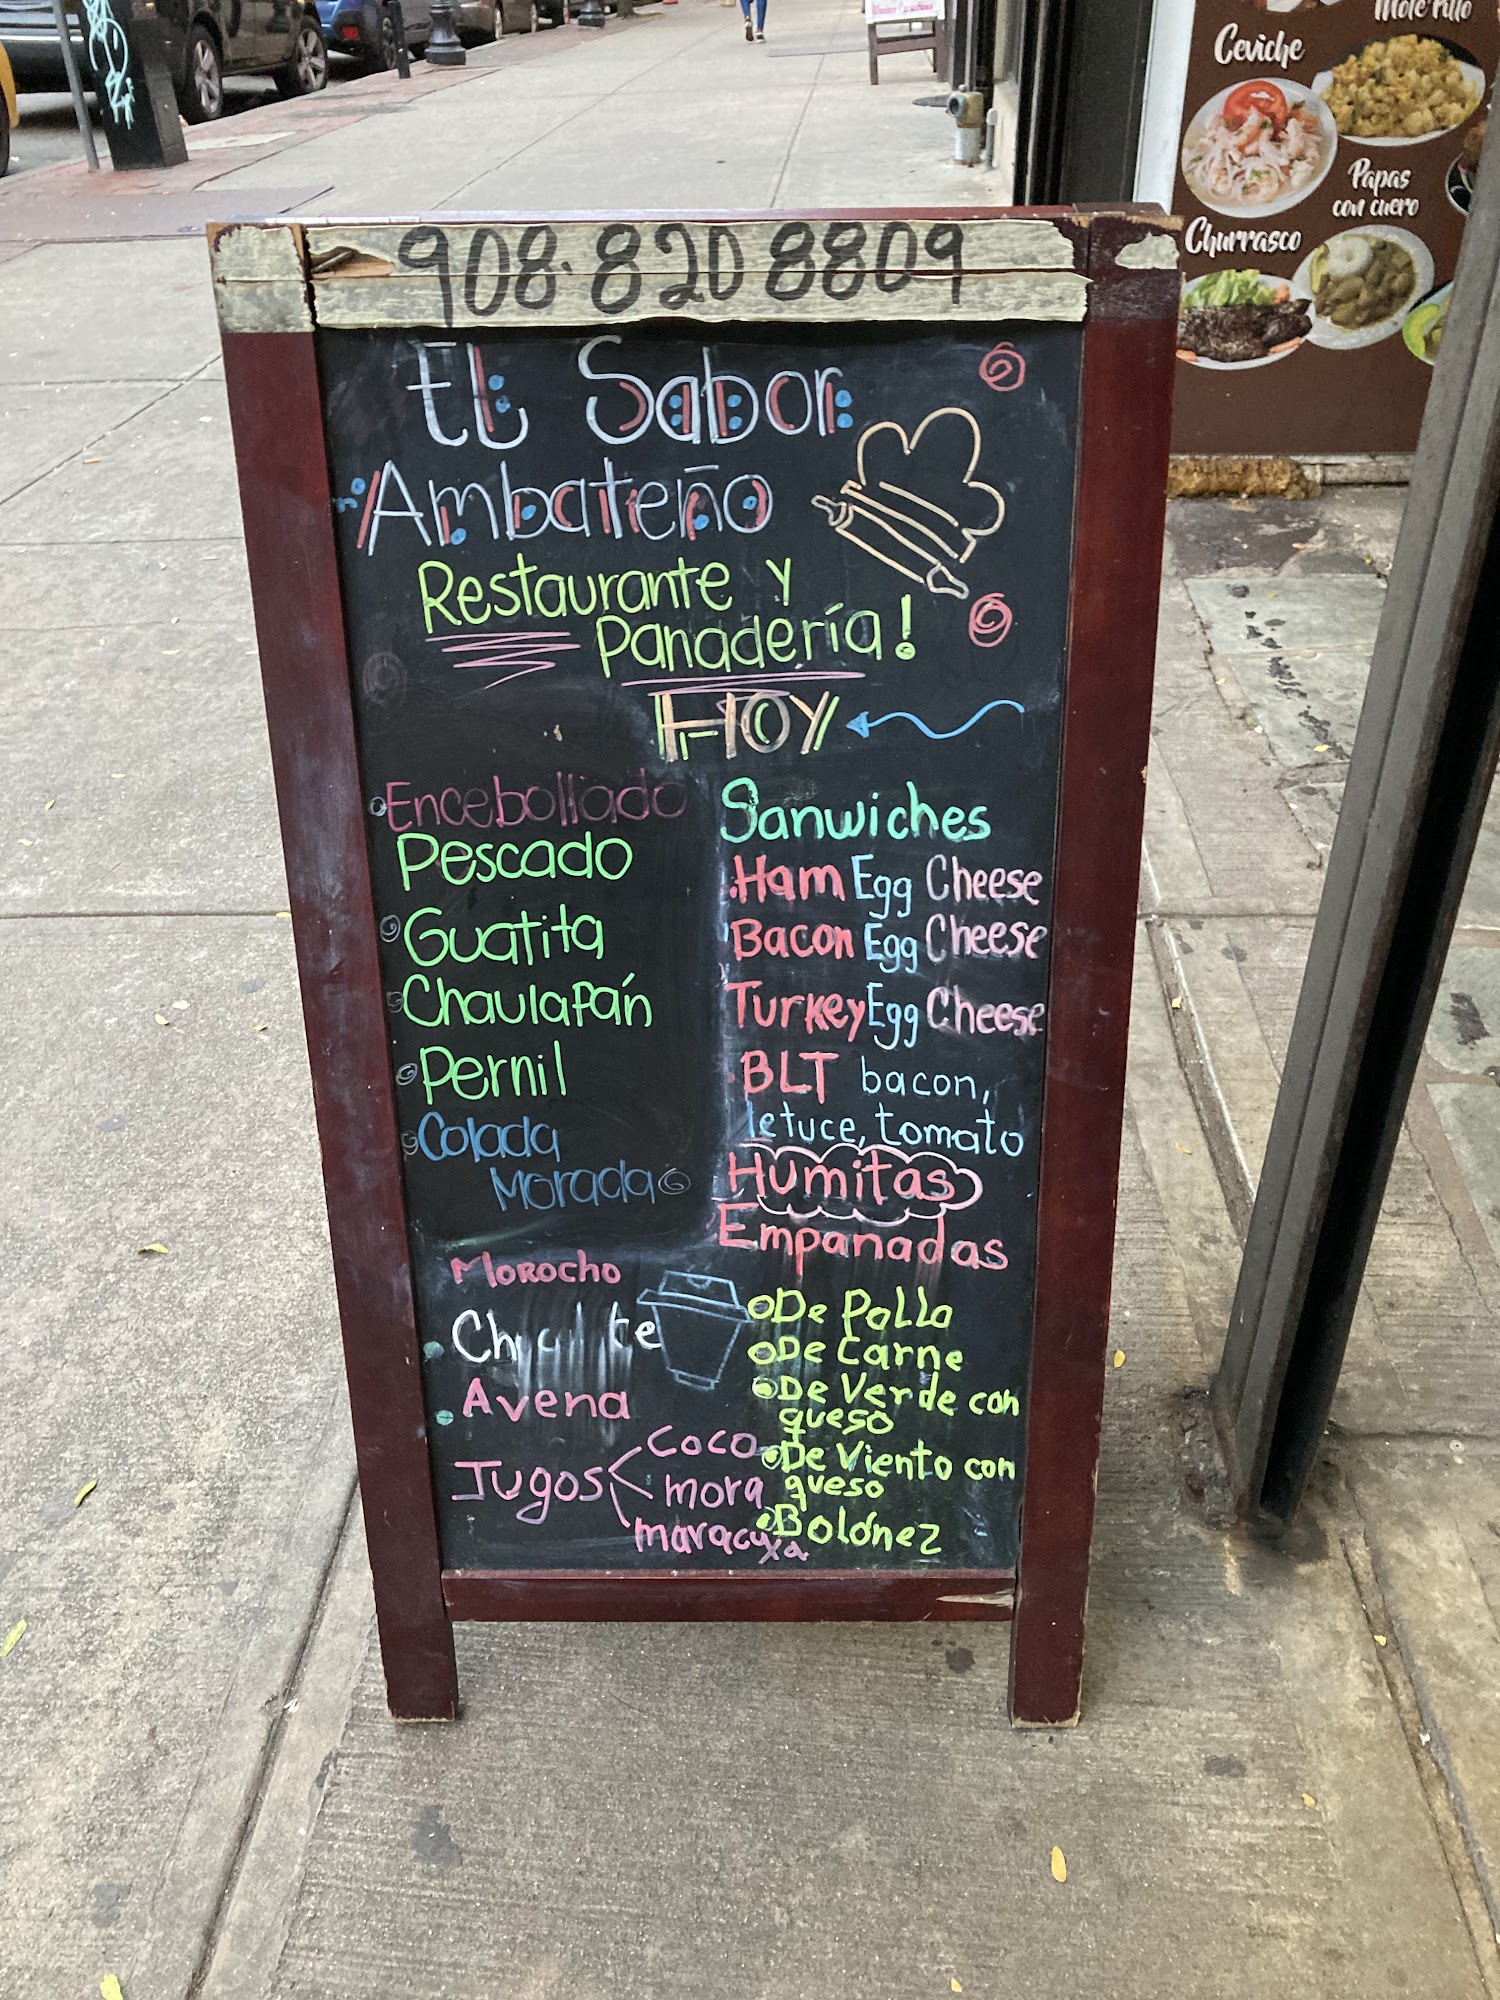 908.820 8809
El Sabor
Ambateño
Restaurante y
Panadería!
HOY
Encebollado
Pescado
Guatita
Chaulapán
Pernil
Colada
Morada
Morocho
Avena
Jugos
Coco
mora
maracuxa
Sanwiches
Ham Egg Cheese
Bacon Egg Cheese
Turkey Egg Cheese
BLT bacon,
letuce, tomato
Humitas
Empanadas
De Pollo
De Carne
De Verde con
queso
De Viento con
queso
Bolónez
Ceviche
Papas
con cuero
Churrasco